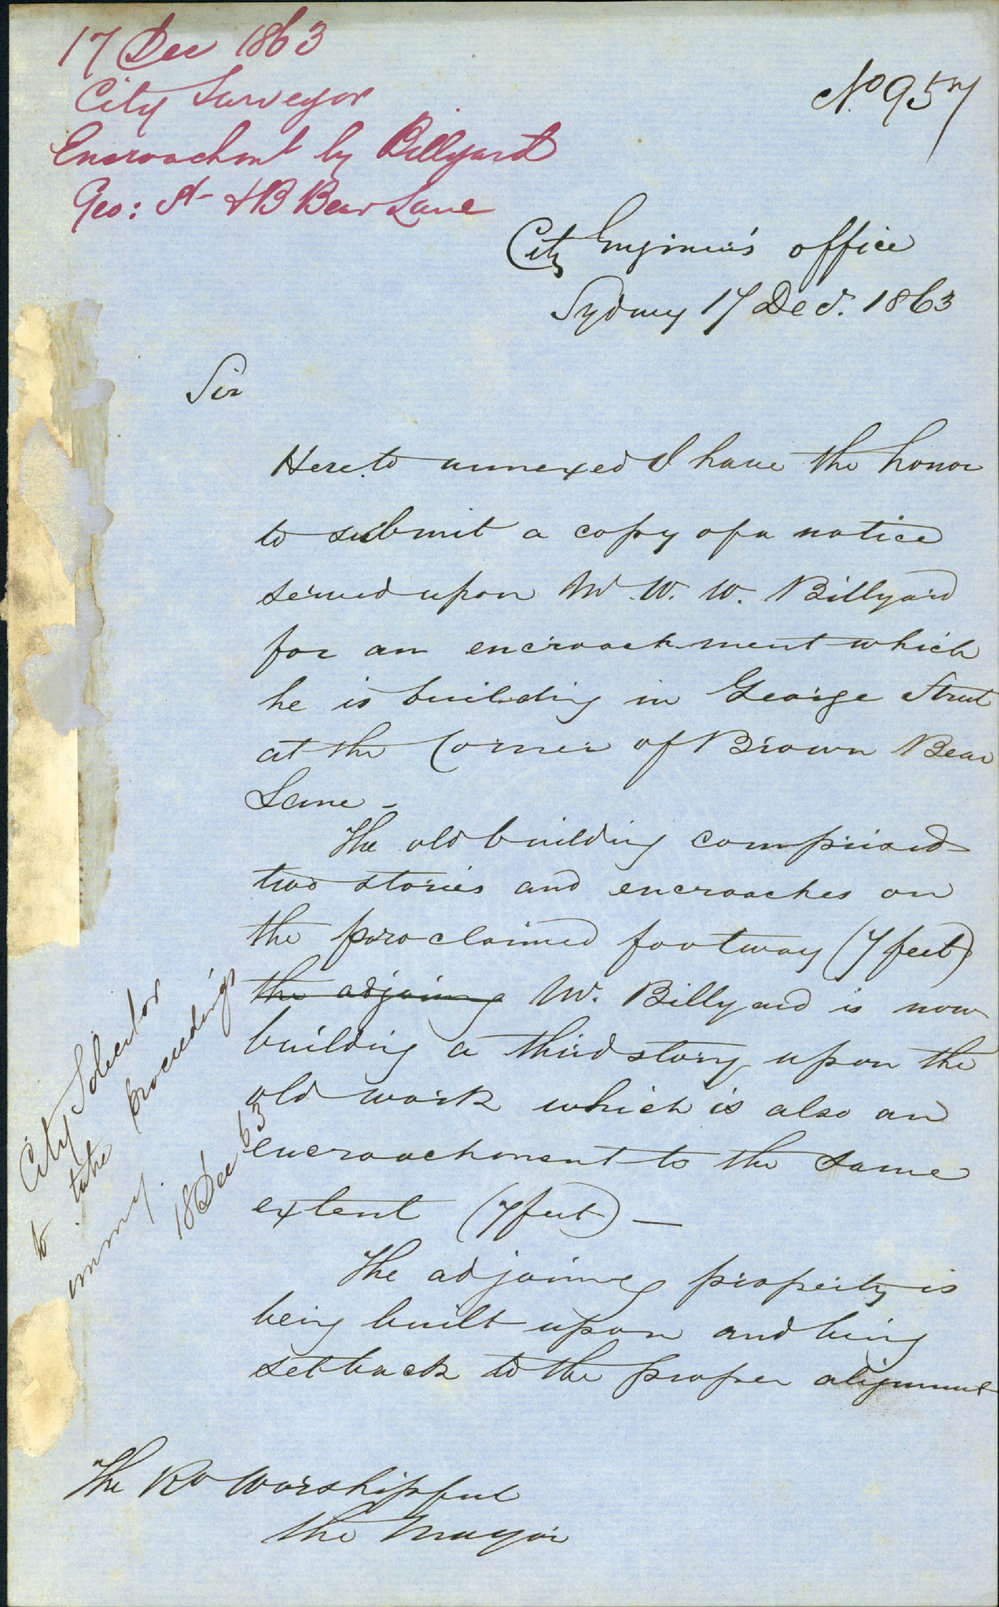 17 Dec 1863
City Surveyor
Encroachmt by Billyard
Geo: St & B Bear Lane
No 957
City Engineer's office
Sydney 17 Decr. 1863
Sir
Hereto annexed I have the honor
to submit a copy of a notice
served upon Mr. W. W. Billyard
for an encroachment which
he is building in George Street
at the Corner of Brown Bear
Lane -
The old building comprised
two stories and encroaches on
the proclaimed footway (7 feet)
the adjoining Mr. Billyard is now
building a third story upon the
old work which is also an
encroachment to the same
extent (7 feet) —
The adjoining property is
being built upon and being
set back to the proper alignment
The Rt Worshipful
the Mayor
City Solicitor
to take proceedings
18 Dec 63